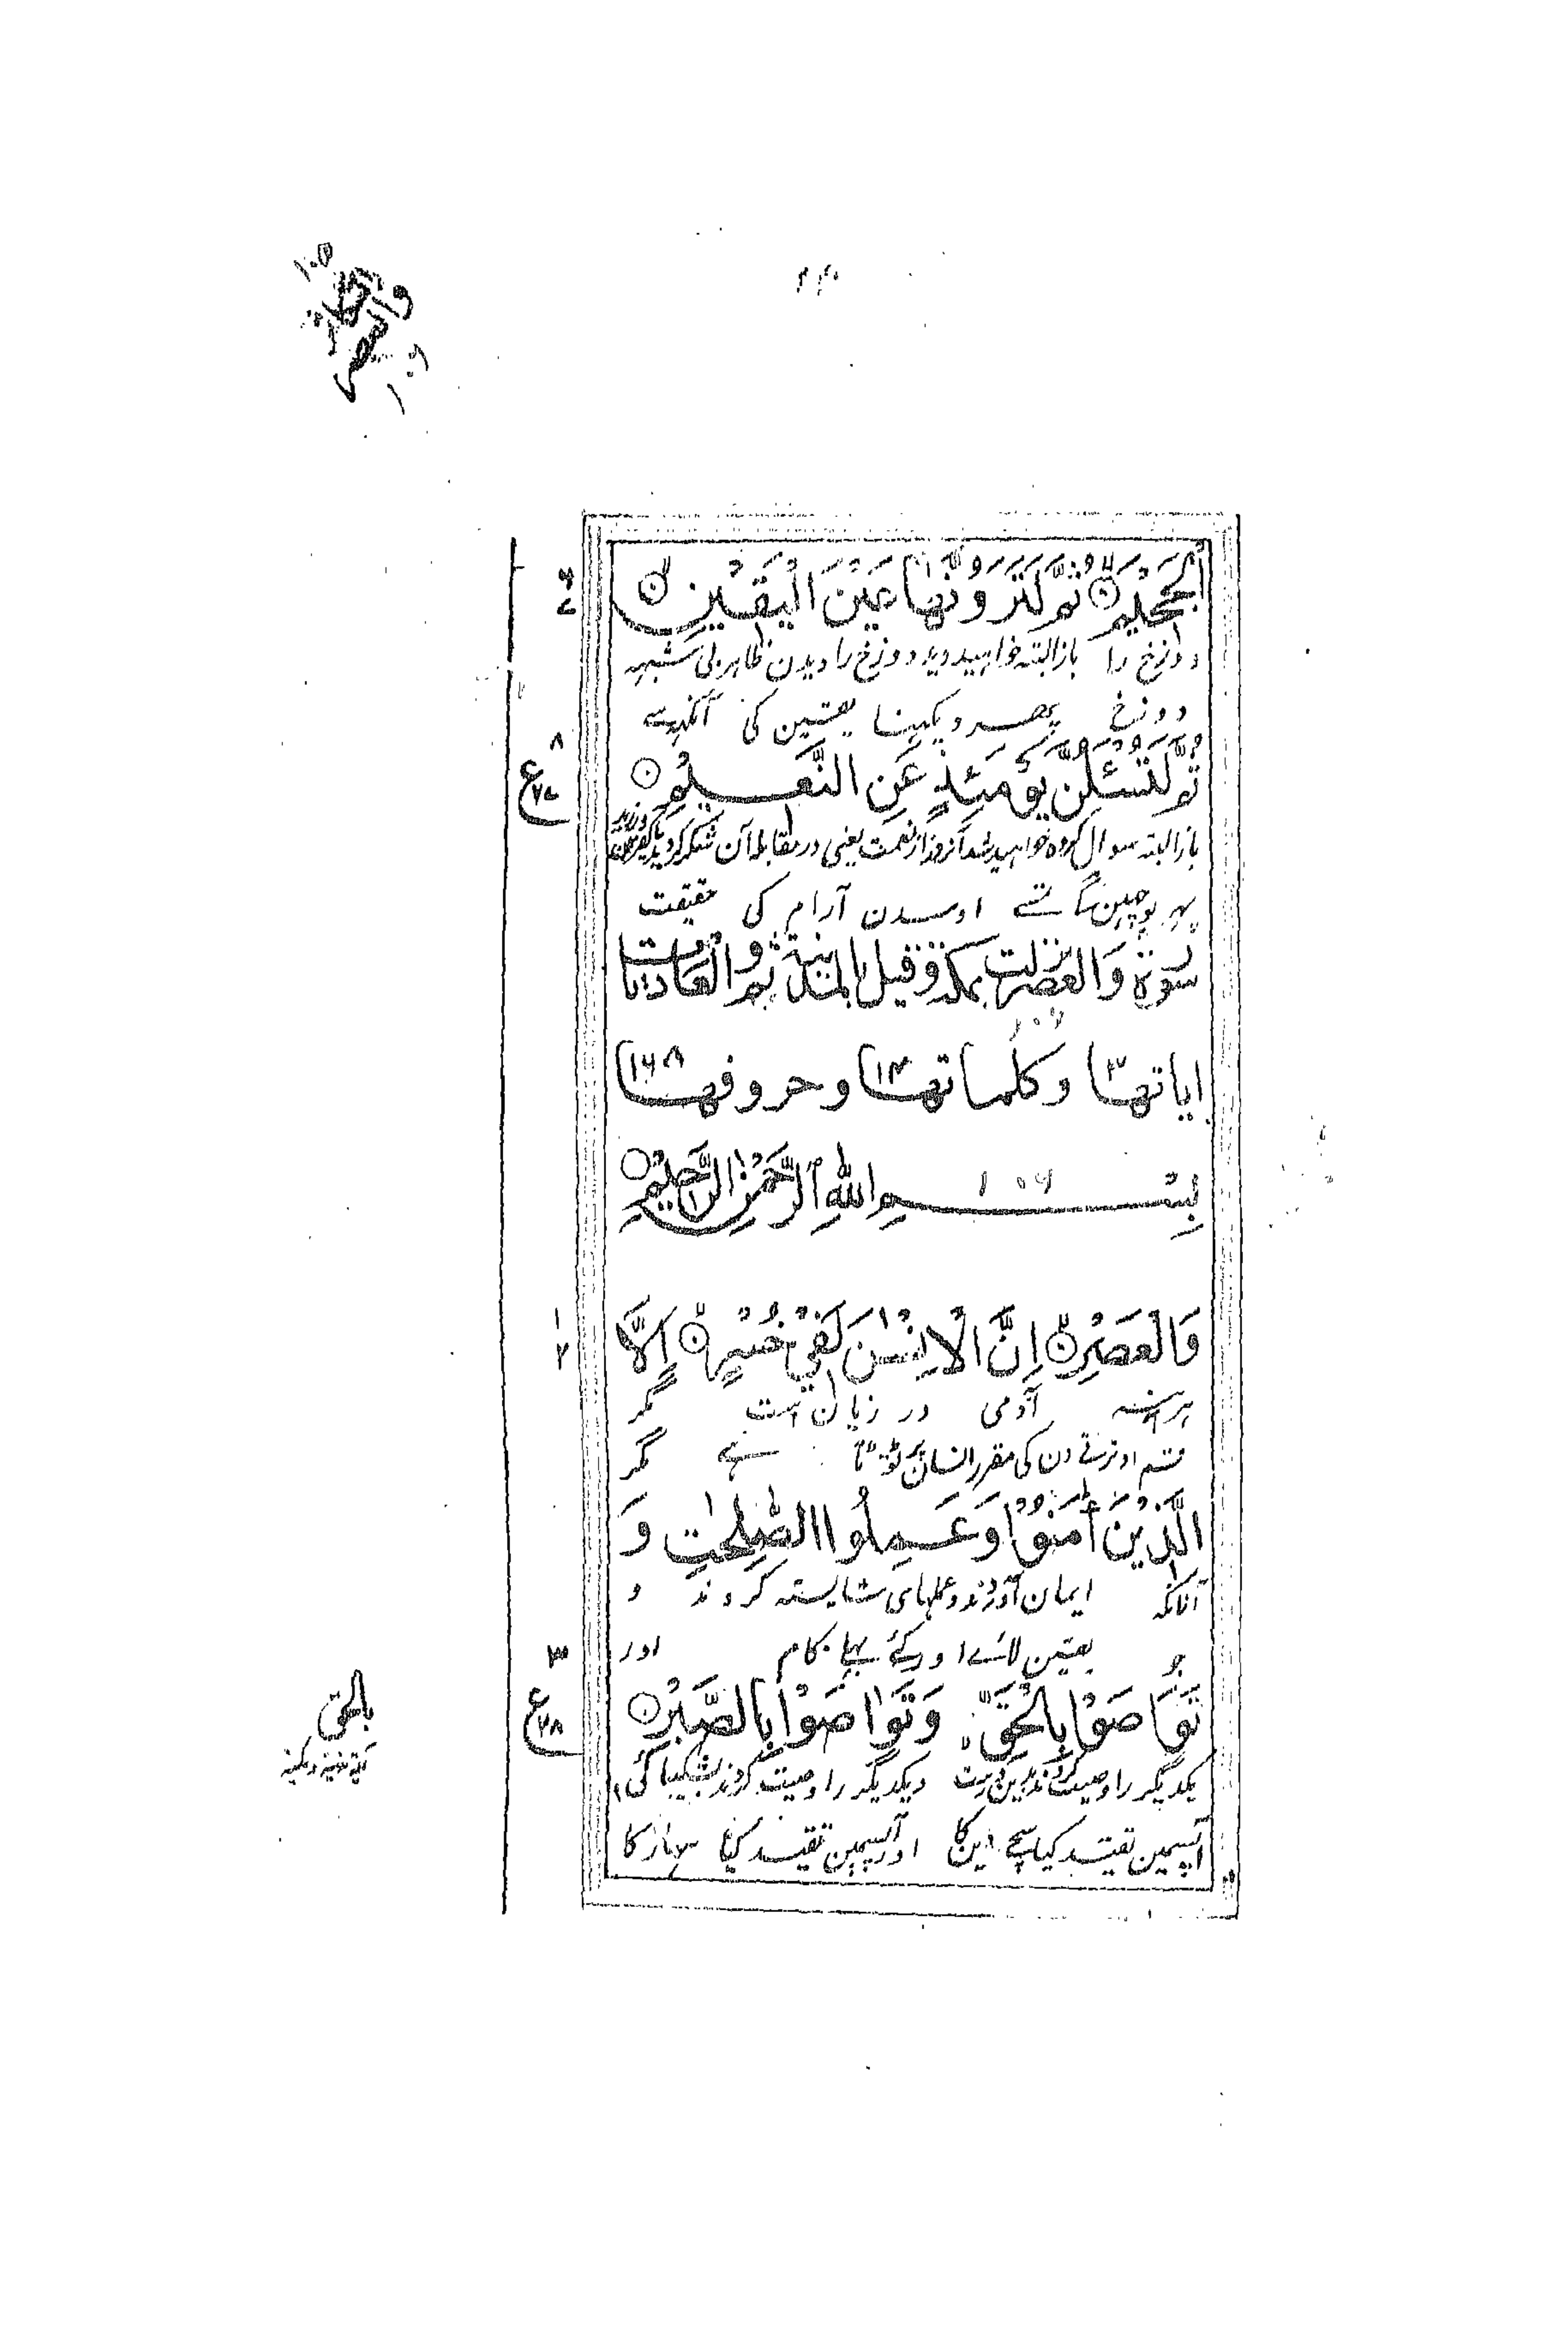 الْجَحِيْمَ ۙ ثُمَّ لَتَرَوُنَّهَا عَيْنَ الْيَقِيْنِ ۙ
دوزخ را باز البته خواهید دید دوزخ را دیدن ظاهر بی شبهه
دوزخ پھر دیکہنا یقین کی آنکہہ سے
ثُمَّ لَتُسْئَلُنَّ يَوْمَئِذٍ عَنِ النَّعِيْمِ
باز البته سوال کرده خواهید شد آنروز از نعمت یعنی در مقابله آن شکر کردید یا
پہر پوچہین گے تمسے اوسدن آرام کی حقیقت
سورة والعصر نزلت بمكة وقيل بالمدينة ثم والعاديات
اياتها ٣ وكلماتها ١٤ وحروفها ١٦٨
١٠٦
بِسْمِ اللهِ الرَّحْمٰنِ الرَّحِيْمِ
وَالْعَصْرِ ۙ اِنَّ الْاِنْسٰنَ لَفِيْ خُسْرٍ ۙ اِلَّا
هرآئنه آدمی در زیان است مگر
قسم اوترتے دن کی مقرر انسان پر ٹوٹا ہے مگر
الَّذِيْنَ اٰمَنُوْا وَعَمِلُوا الصّٰلِحٰتِ وَ
آنانکه ایمان آوردند و عملهای شایسته کردند و
جو یقین لائے اور کئے بہلے کام اور
تَوَاصَوْا بِالْحَقِّ وَتَوَاصَوْا بِالصَّبْرِ
یکدیگر را وصیت کردند بدین درست و یکدیگر را وصیت کردند بشکیبائی
آپسمین تقید کیا سچے دین کا اور آپسمین تقید کیا سہار کا
١٠٥
والعصر
١٠٦
٦
٧
٨
ع
١
٢
٣
ع
٢٨
بالحق